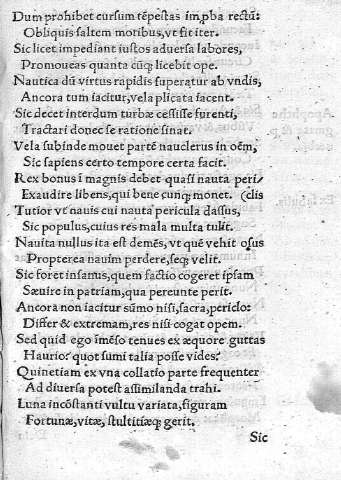 Dum prohibet cursum tēpestas im,pba rectū:
Obliquis saltem motibus, vt fit iter.
Sic licet impediant iustos aduersa labores,
Promoueas quanta cūq; licebit ope.
Nautica dū virtus rapidis superatur ab vndis,
Ancora tum iacitur, vela plicata iacent.
Sic decet interdum turbæ cessisse furenti,
Tractari donec se ratione sinat.
Vela subinde mouet partē nauclerus in oēm,
Sic sapiens certo tempore certa facit.
Rex bonus ī magnis debet quasi nauta peri/
Exaudire libens, qui bene cunq̄ monet. (clis
Tutior vt nauis cui nauta pericula passus,
Sic populus, cuius res mala multa tulit.
Nauita nullus ita est demēs, vt quē vehit osus
Propterea nauim perdere, seq; velit.
Sic foret insanus, quem factio cogeret ipsam
Sæuire in patriam, qua pereunte perit.
Ancora non iacitur sūmo nisi, sacra, periclo:
Differ & extremam, res nisi cogat opem.
Sed quid ego īmēso tenues ex æquore guttas
Haurio? quot sumi talia posse vides?
Quinetiam ex vna collatio parte frequenter
Ad diuersa potest assimilanda trahi.
Luna incōstanti vultu variata, figuram
Fortunæ, vitæ, stultitiæq; gerit.
Sic